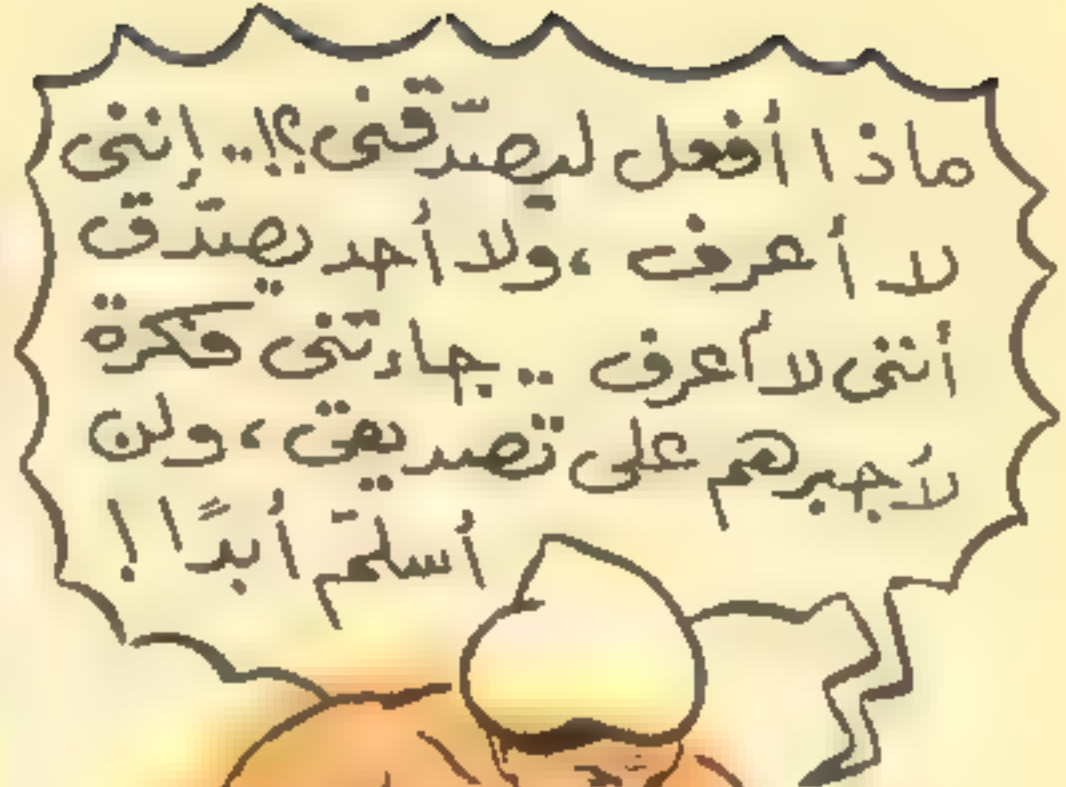 ماذا أفعل ليصدّقنى؟!.. إننى
لا أعرف، ولا أحد يصدّق
أننى لا أعرف .. جاءتنى فكرة
لأجبرهم على تصديقى، ولن
أسلّم أبدًا!